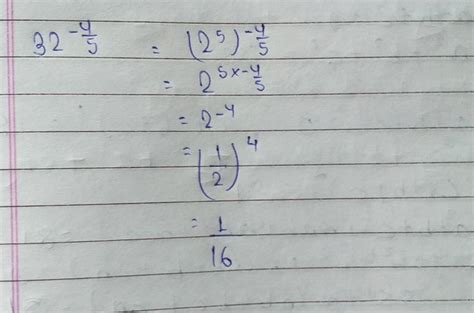 32^{-4/5} = (2^5)^{-4/5}
= 2^{5×-4/5}
= 2^{-4}
= (1/2)^4
= 1/16